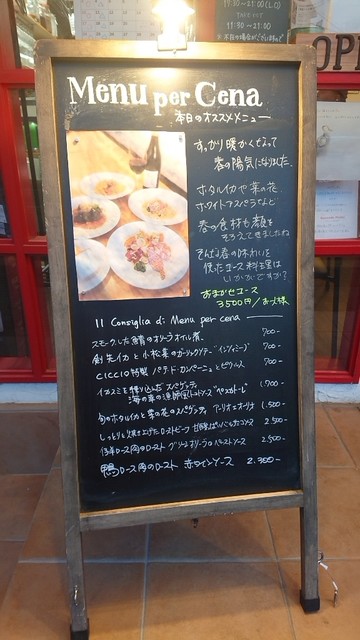 17:30~21:00(L.O)
TAKE OUT
11:30~21:00
OP
Menu per Cena
本日のオススメメニュー
すっかり暖かくなって
春の陽気になりました
ホタルイカや菜の花
ホワイトアスパラなど
春の食材も顔を
そろえてきましたね
そんな春の味わいを
使ったコース料理は
いかがですか?
おまかせコース
3500円/お一人様
Il Consiglio di Menu per cena
スモークした鯖のオリーブオイル煮 700-
剣先イカと小松菜のガーリックソテー"インツィミーノ" 700-
CICCIO特製 パテ・ド・カンパーニュとピクルス 700-
イカスミを練り込んだスパゲッティ
海の幸の漁師風トマトソース"ペスカトーレ" 1,700-
旬のホタルイカと菜の花のスパゲッティ アーリオオーリオ 1,500-
しっとりと焼き上げたローストビーフ 2,500-
ロース肉のロースト グリーンオリーブのペーストソース 2,500-
鴨ロース肉のロースト 赤ワインソース 2,300-